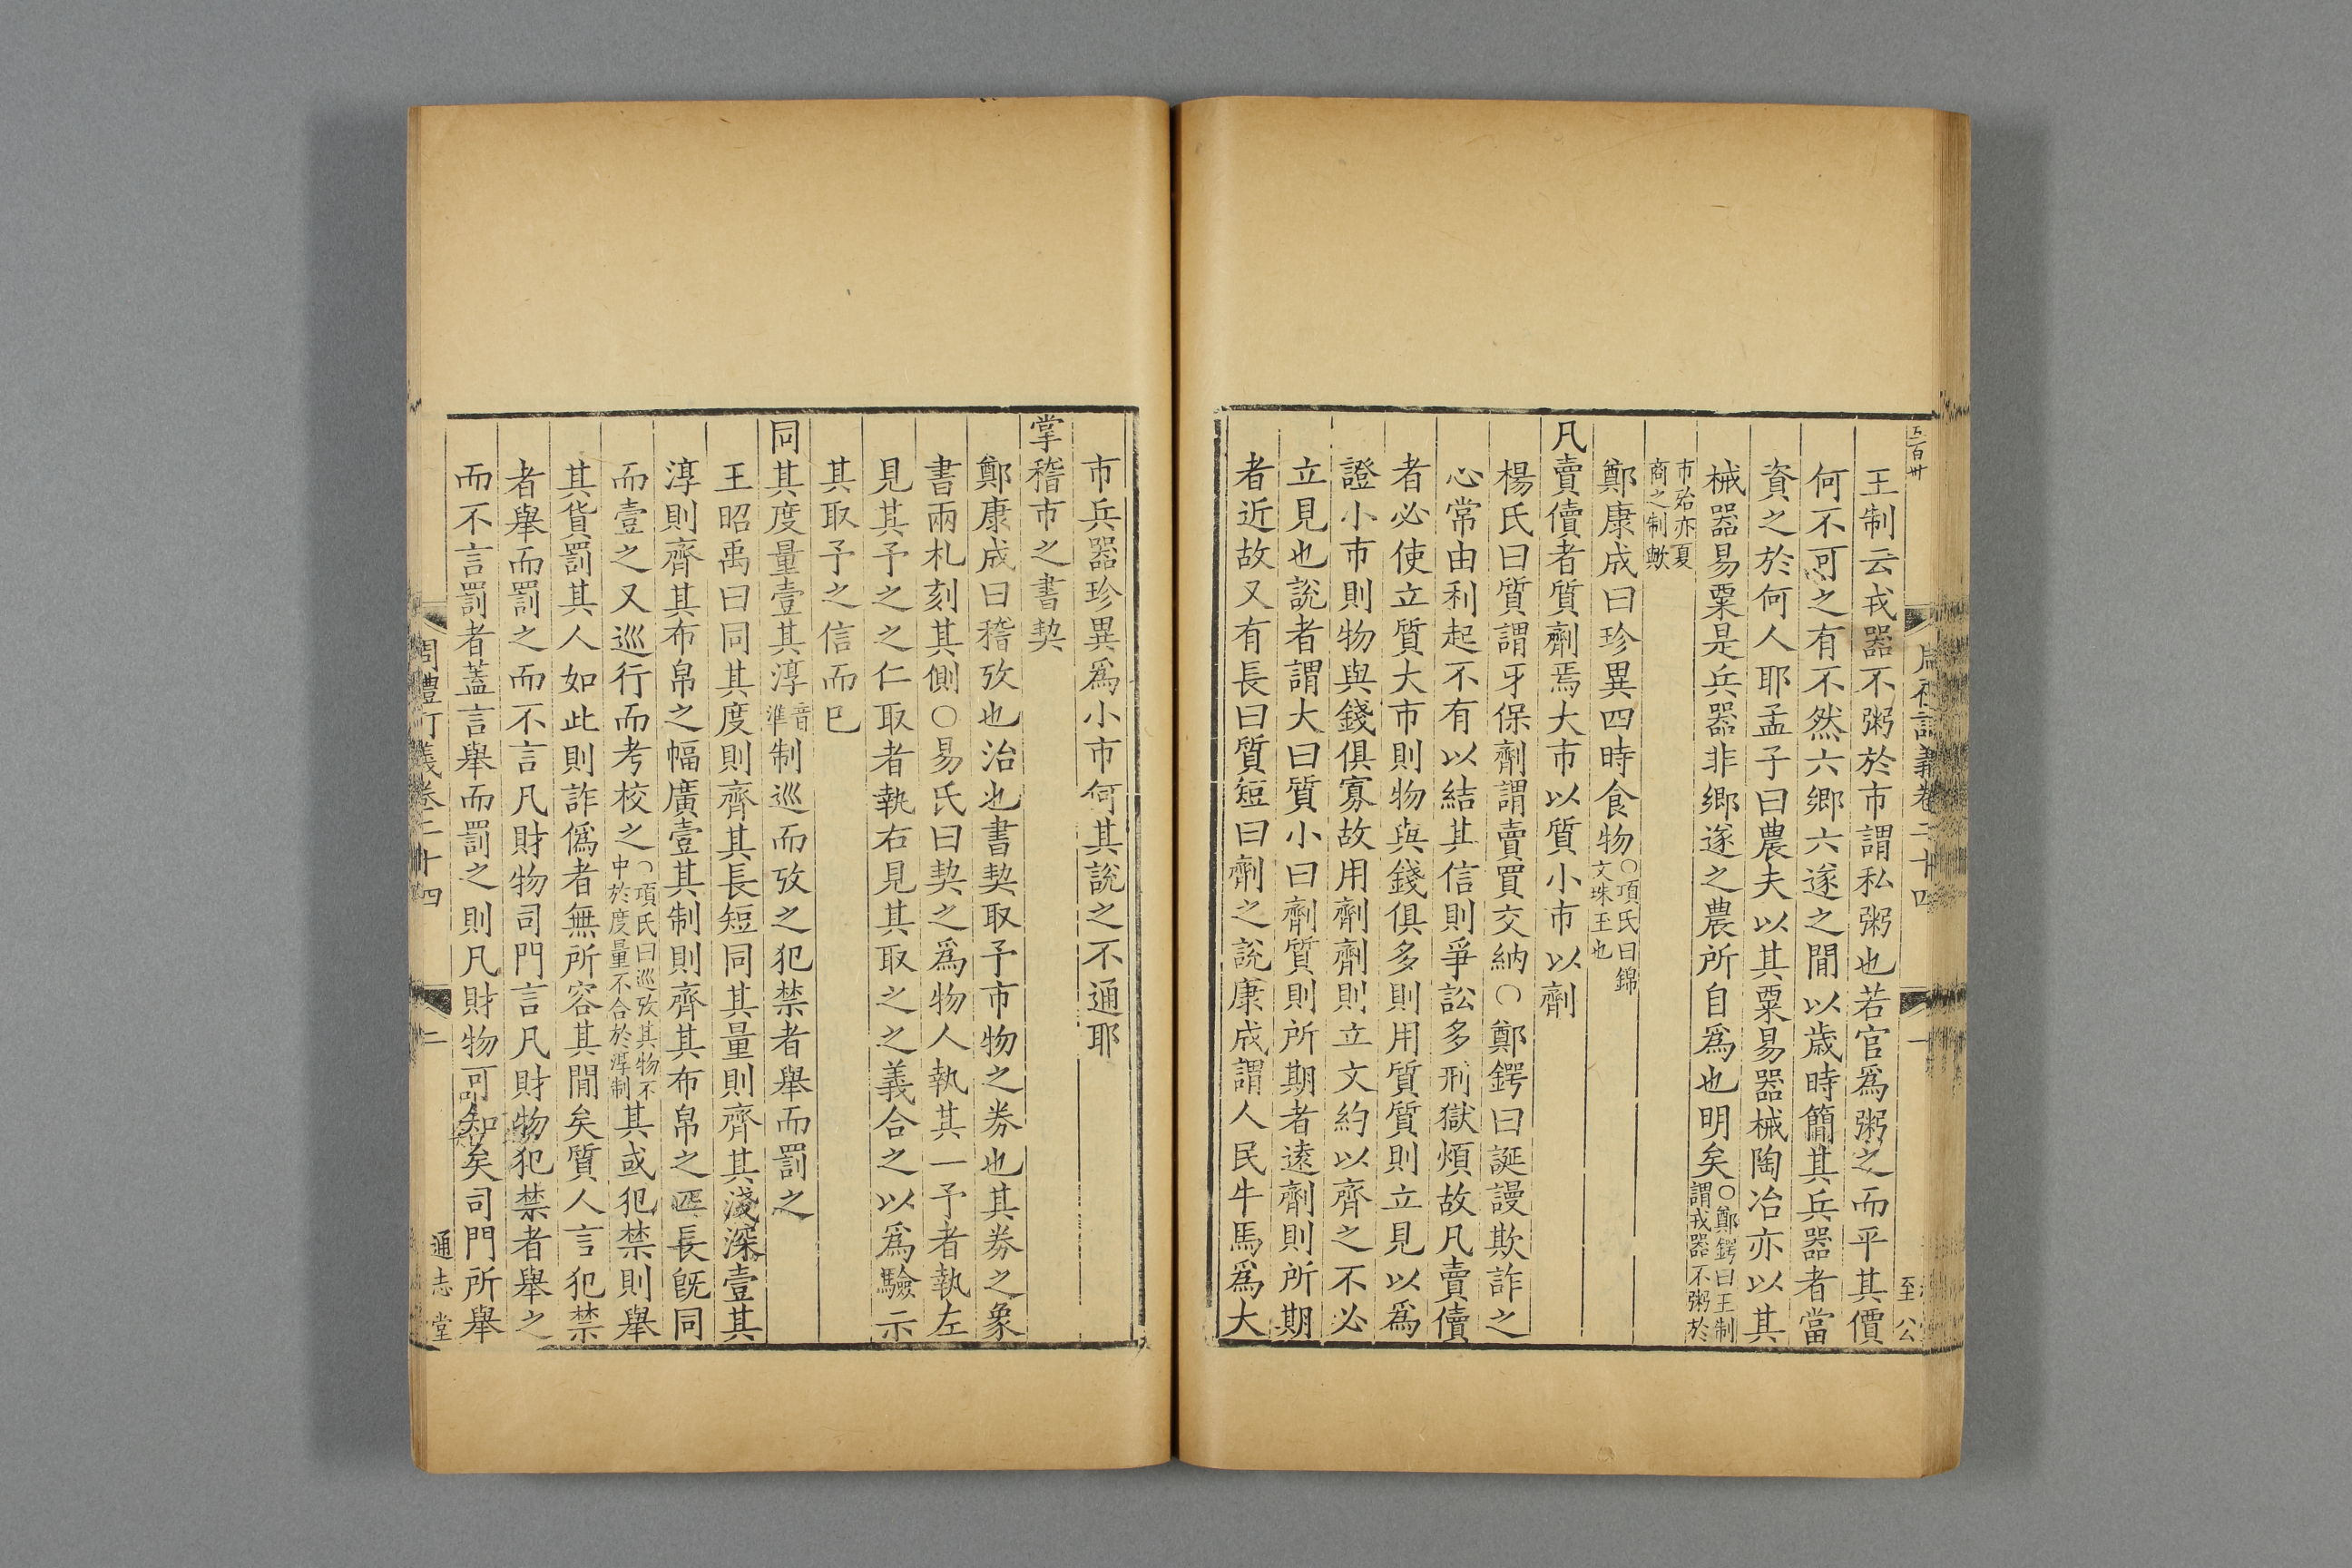 王制云戎器不粥於市謂私粥也若官爲粥之而平其價
何不可之有不然六鄉六遂之閒以歳時簡其兵器者當
資之於何人耶孟子曰農夫以其粟易器械陶冶亦以其
械器易粟是兵器非鄉遂之農所自爲也明矣○鄭鍔曰王制謂戎器不粥於
市殆亦夏商之制歟
鄭康成曰珍異四時食物○項氏曰錦文珠玉也
凡賣儥者質劑焉大市以質小市以劑
楊氏曰質謂牙保劑謂賣買交納○鄭鍔曰誕謾欺詐之
心常由利起不有以結其信則爭訟多刑獄煩故凡賣儥
者必使立質大市則物與錢俱多則用質質則立見以爲
證小市則物與錢俱寡故用劑劑則立文約以齊之不必
立見也說者謂大曰質小曰劑質則所期者遠劑則所期
者近故又有長曰質短曰劑之說康成謂人民牛馬爲大
市兵器珍異爲小市何其說之不通耶
掌稽市之書契
鄭康成曰稽攷也治也書契取予市物之券也其券之象
書兩札刻其側○易氏曰契之爲物人執其一予者執左
見其予之之仁取者執右見其取之之義合之以爲驗示
其取予之信而已
同其度量壹其淳音準制巡而攷之犯禁者舉而罰之
王昭禹曰同其度則齊其長短同其量則齊其淺深壹其
淳則齊其布帛之幅廣壹其制則齊其布帛之匹長旣同
而壹之又巡行而考校之○項氏曰巡攷其物不中於度量不合於淳制其或犯禁則舉
其貨罰其人如此則詐僞者無所容其閒矣質人言犯禁
者舉而罰之而不言凡財物司門言凡財物犯禁者舉之
而不言罰者蓋言舉而罰之則凡財物可知矣司門所舉
周禮訂義卷二十四
二
通志堂